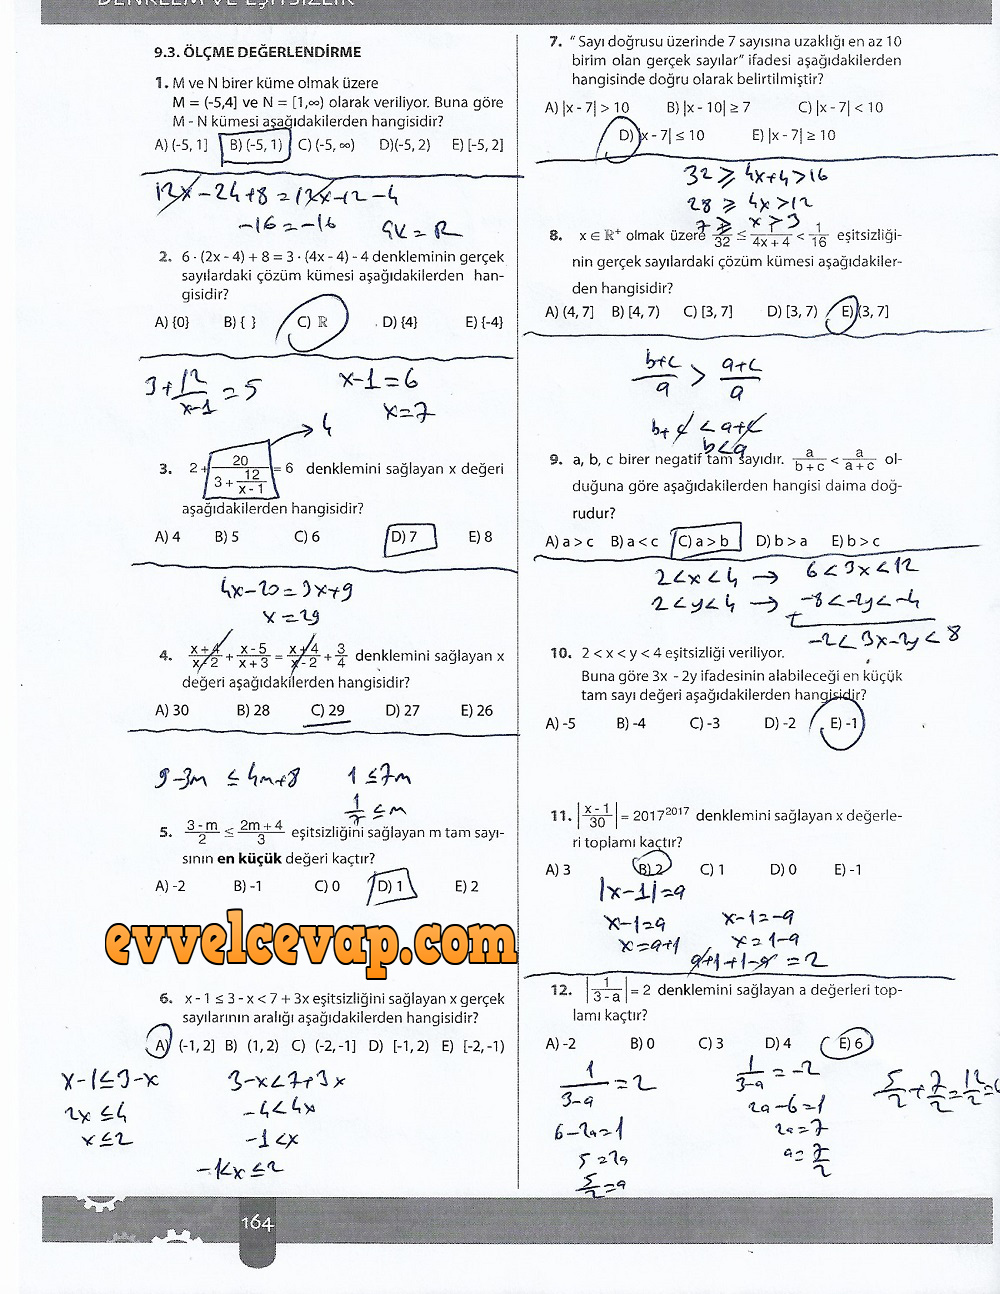 DENKLEM VE EŞİTSİZLİK
9.3. ÖLÇME DEĞERLENDİRME
1. M ve N birer küme olmak üzere
M = (-5,4] ve N = [1,∞) olarak veriliyor. Buna göre
M - N kümesi aşağıdakilerden hangisidir?
A) (-5, 1] B) (-5, 1) C) (-5, ∞) D)(-5, 2) E) [-5, 2]
12x - 24 + 8 = 12x - 12 - 4
-16 = -16 ÇK = R
2. 6 · (2x - 4) + 8 = 3 · (4x - 4) - 4 denkleminin gerçek
sayılardaki çözüm kümesi aşağıdakilerden han-
gisidir?
A) {0} B) { } C) ℝ D) {4} E) {-4}
3 + 12/(x-1) = 5 x - 1 = 6
x = 7
4
3. 2 + 20/(3 + 12/(x - 1)) = 6 denklemini sağlayan x değeri
aşağıdakilerden hangisidir?
A) 4 B) 5 C) 6 D) 7 E) 8
4x - 20 = 3x + 9
x = 29
4. (x + 4)/(x - 2) + (x - 5)/(x + 3) = (x + 4)/(x - 2) + 3/4 denklemini sağlayan x
değeri aşağıdakilerden hangisidir?
A) 30 B) 28 C) 29 D) 27 E) 26
9 - 3m ≤ 4m + 8 1 ≤ 7m
1/7 ≤ m
5. (3 - m)/2 ≤ (2m + 4)/3 eşitsizliğini sağlayan m tam sayı-
sının en küçük değeri kaçtır?
A) -2 B) -1 C) 0 D) 1 E) 2
evvelcevap.com
6. x - 1 ≤ 3 - x < 7 + 3x eşitsizliğini sağlayan x gerçek
sayılarının aralığı aşağıdakilerden hangisidir?
A) (-1, 2] B) (1, 2) C) (-2, -1] D) [-1, 2) E) [-2, -1)
x - 1 ≤ 3 - x 3 - x < 7 + 3x
2x ≤ 4 -4 < 4x
x ≤ 2 -1 < x
-1 < x ≤ 2
164
7. “ Sayı doğrusu üzerinde 7 sayısına uzaklığı en az 10
birim olan gerçek sayılar” ifadesi aşağıdakilerden
hangisinde doğru olarak belirtilmiştir?
A) |x - 7| > 10 B) |x - 10| ≥ 7 C) |x - 7| < 10
D) |x - 7| ≤ 10 E) |x - 7| ≥ 10
32 ≥ 4x + 4 > 16
28 ≥ 4x > 12
7 ≥ x > 3
8. x ∈ ℝ⁺ olmak üzere 1/32 ≤ 1/(4x + 4) < 1/16 eşitsizliği-
nin gerçek sayılardaki çözüm kümesi aşağıdakiler-
den hangisidir?
A) (4, 7] B) [4, 7) C) [3, 7] D) [3, 7) E) (3, 7]
(b+c)/a > (a+c)/a
b + c < a + c
b < a
9. a, b, c birer negatif tam sayıdır. a/(b + c) < a/(a + c) ol-
duğuna göre aşağıdakilerden hangisi daima doğ-
rudur?
A) a > c B) a < c C) a > b D) b > a E) b > c
2 < x < 4 → 6 < 3x < 12
2 < y < 4 → -8 < -2y < -4
+
-2 < 3x - 2y < 8
10. 2 < x < y < 4 eşitsizliği veriliyor.
Buna göre 3x - 2y ifadesinin alabileceği en küçük
tam sayı değeri aşağıdakilerden hangisidir?
A) -5 B) -4 C) -3 D) -2 E) -1
11. |(x - 1)/30| = 2017²⁰¹⁷ denklemini sağlayan x değerle-
ri toplamı kaçtır?
A) 3 B) 2 C) 1 D) 0 E) -1
|x - 1| = a
x - 1 = a x - 1 = -a
x = a + 1 x = 1 - a
a + 1 + 1 - a = 2
12. |1/(3 - a)| = 2 denklemini sağlayan a değerleri top-
lamı kaçtır?
A) -2 B) 0 C) 3 D) 4 E) 6
1/(3-a) = 2 1/(3-a) = -2 5/2 + 7/2 = 12/2 = 6
6 - 2a = 1 2a - 6 = 1
5 = 2a 2a = 7
5/2 = a a = 7/2